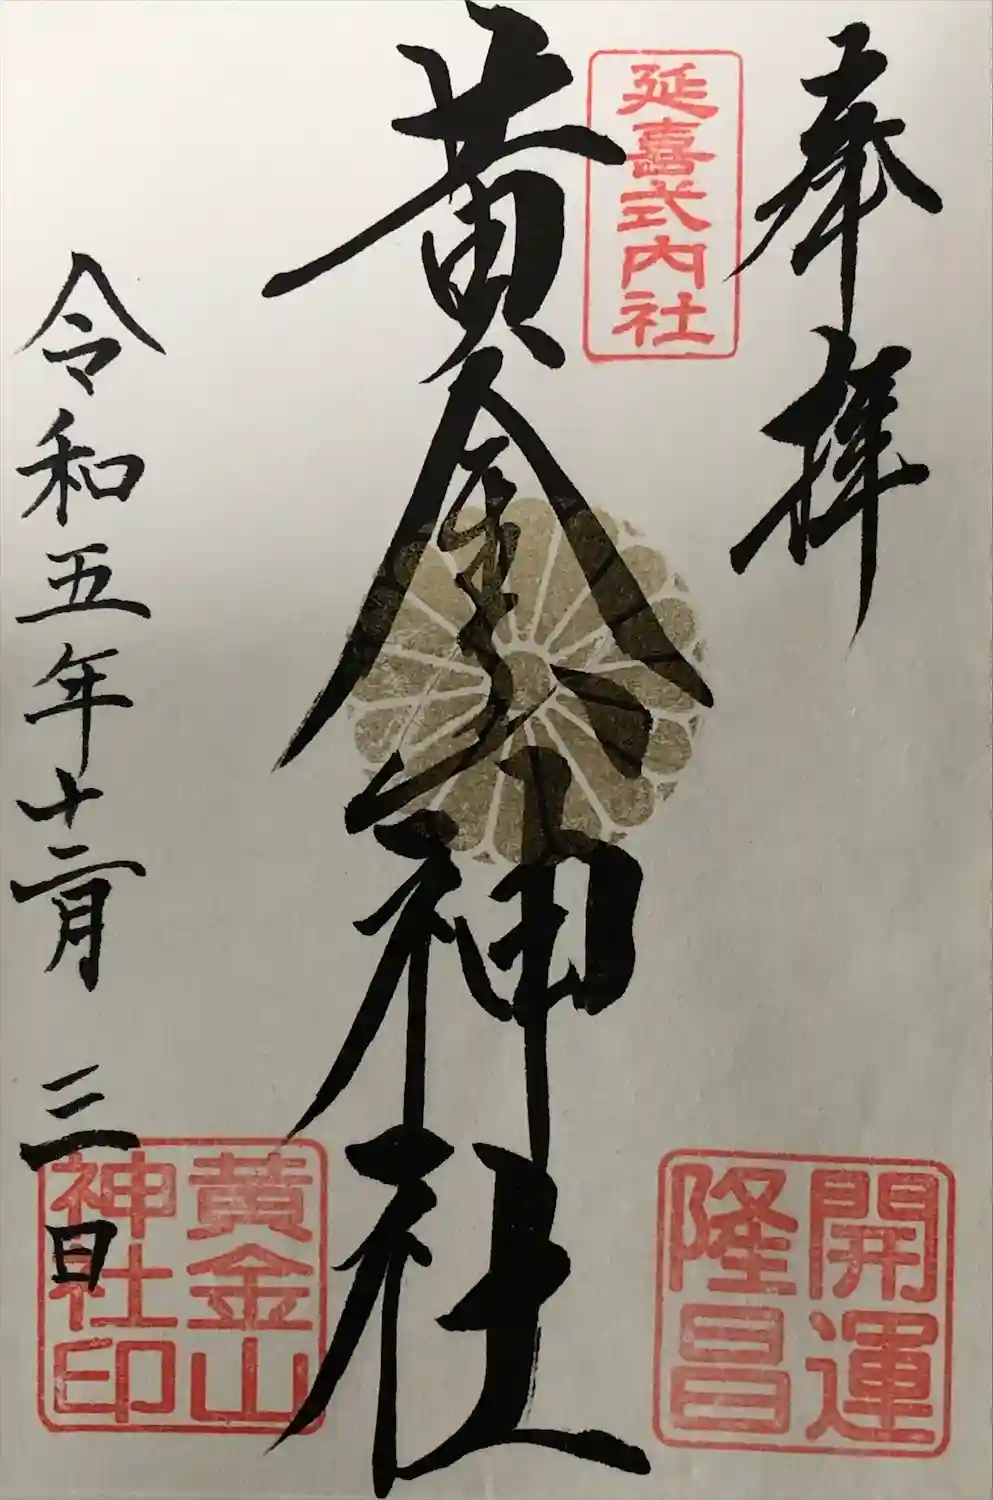 奉拝
延喜式内社
黄金神社
令和五年十二月三日
開運
隆昌
黄金山
神社印